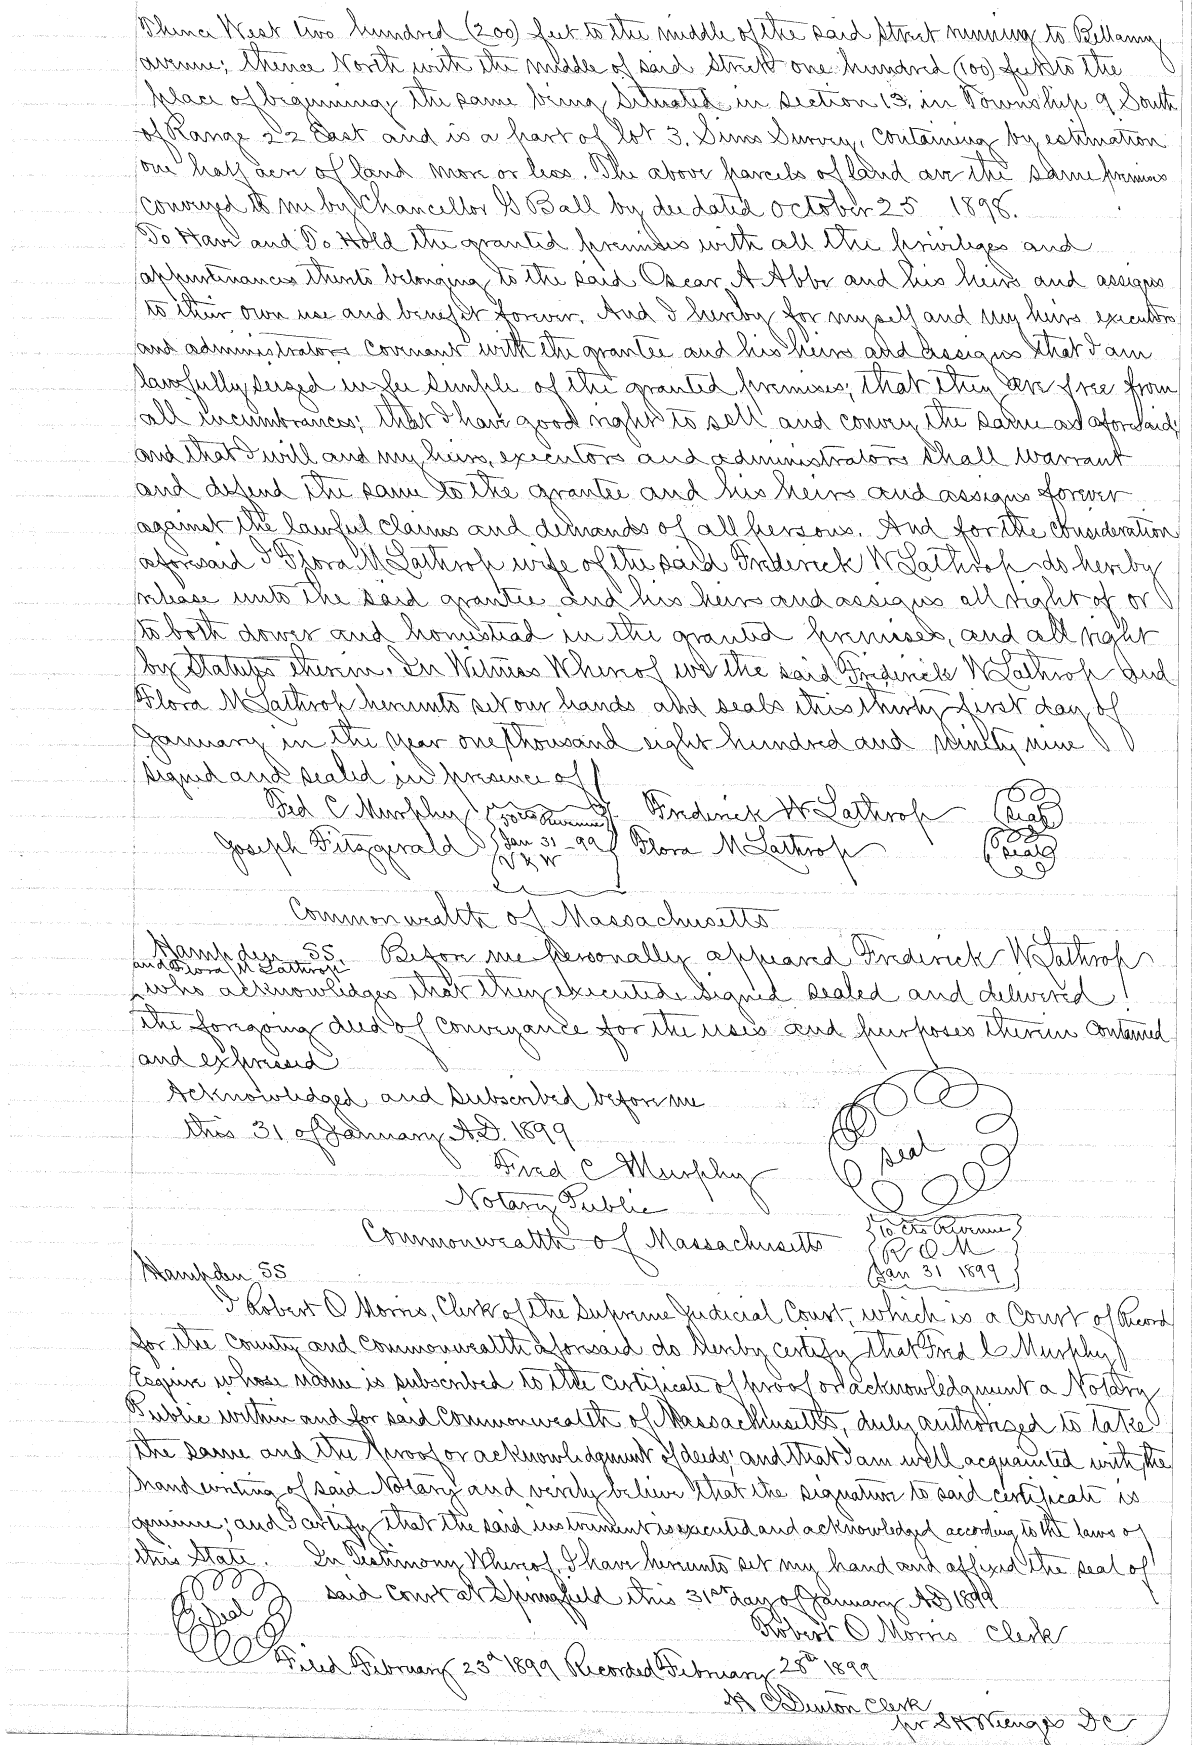 Thence West two hundred (200) feet to the middle of the said street running to Bellamy
avenue; thence North with the middle of said street one hundred (100) feet to the
place of beginning, the same being situated in section 13, in Township 9 South
of Range 22 East and is a part of lot 3, Sims Survey, containing by estimation
one half acre of land more or less. The above parcels of land are the same premises
conveyed to me by Chancellor G Ball by deed dated October 25 1898.
To Have and To Hold the granted premises with all the privileges and
appurtenances thereto belonging to the said Oscar A Abbe and his heirs and assigns
to their own use and benefit forever. And I hereby for myself and my heirs executors
and administrators covenant with the grantee and his heirs and assigns that I am
lawfully seized in fee simple of the granted premises; that they are free from
all incumbrances; that I have good right to sell and convey the same as aforesaid;
and that I will and my heirs, executors and administrators shall warrant
and defend the same to the grantee and his heirs and assigns forever
against the lawful claims and demands of all persons. And for the consideration
aforesaid I Flora M Lathrop wife of the said Frederick W Lathrop do hereby
release unto the said grantee and his heirs and assigns all right of or
to both dower and homestead in the granted premises, and all right
by Statutes therein. In Witness Whereof we the said Frederick W Lathrop and
Flora M Lathrop hereunto set our hands and seals this thirty first day of
January in the year one thousand eight hundred and ninety nine
signed and sealed in presence of
Fred C Murphy 50 cts Revenue Frederick W Lathrop seal
Joseph Fitzgerald Jan 31 - 99 Flora M Lathrop seal
Commonwealth of Massachusetts
Hampden SS. Before me personally appeared Frederick W Lathrop
and Flora M Lathrop
who acknowledges that they executed signed sealed and delivered
the foregoing deed of conveyance for the uses and purposes therein contained
and expressed
Acknowledged and subscribed before me
this 31 of January A.D. 1899
seal
Fred C Murphy
Notary Public
10 cts Revenue
Commonwealth of Massachusetts R O M
Jan 31 1899
Hampden SS
I Robert O Morris, Clerk of the Supreme Judicial Court, which is a Court of Record
for the county and commonwealth aforesaid do hereby certify that Fred C Murphy
Esquire whose name is subscribed to the certificate of proof or acknowledgment a Notary
Public within and for said Commonwealth of Massachusetts, duly authorized to take
the same and the proof or acknowledgment of deeds; and that I am well acquainted with the
hand writing of said Notary and verily believe that the signature to said certificate is
genuine; and I certify that the said instrument is executed and acknowledged according to the laws of
this State. In Testimony Whereof, I have hereunto set my hand and affixed the seal of
said court at Springfield this 31st day of January AD 1899
seal
Robert O Morris Clerk
Filed February 23d 1899 Recorded February 28th 1899
H C Denton Clerk
pr S H DC